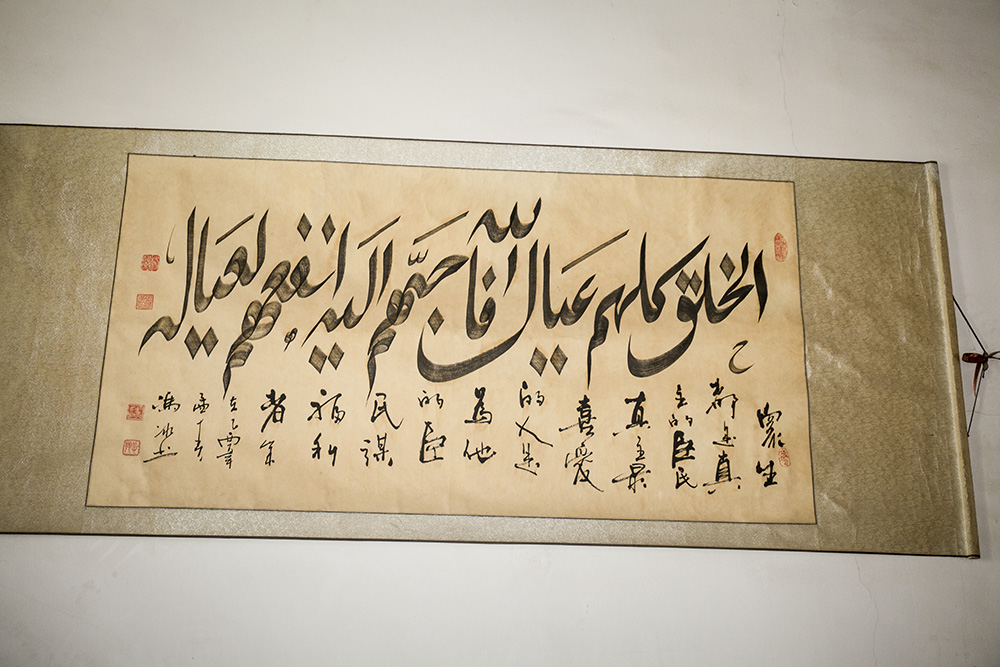 الخلق كلهم عيال الله فاحبهم اليه انفعهم لعياله
眾生
都是真
主的臣民
真主最
喜愛
的人是
為他
的臣
民謀
福利
者
在乙酉年